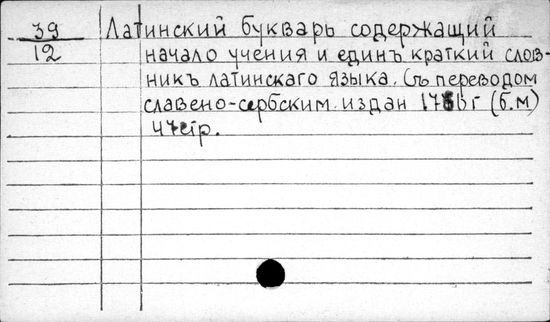 39
12
Латинский букварь содержащий
начало учения и единъ краткий слов-
никъ латинскаго языка. Съ переводом
славено-сербским. издан г (б.м)
47 стр.